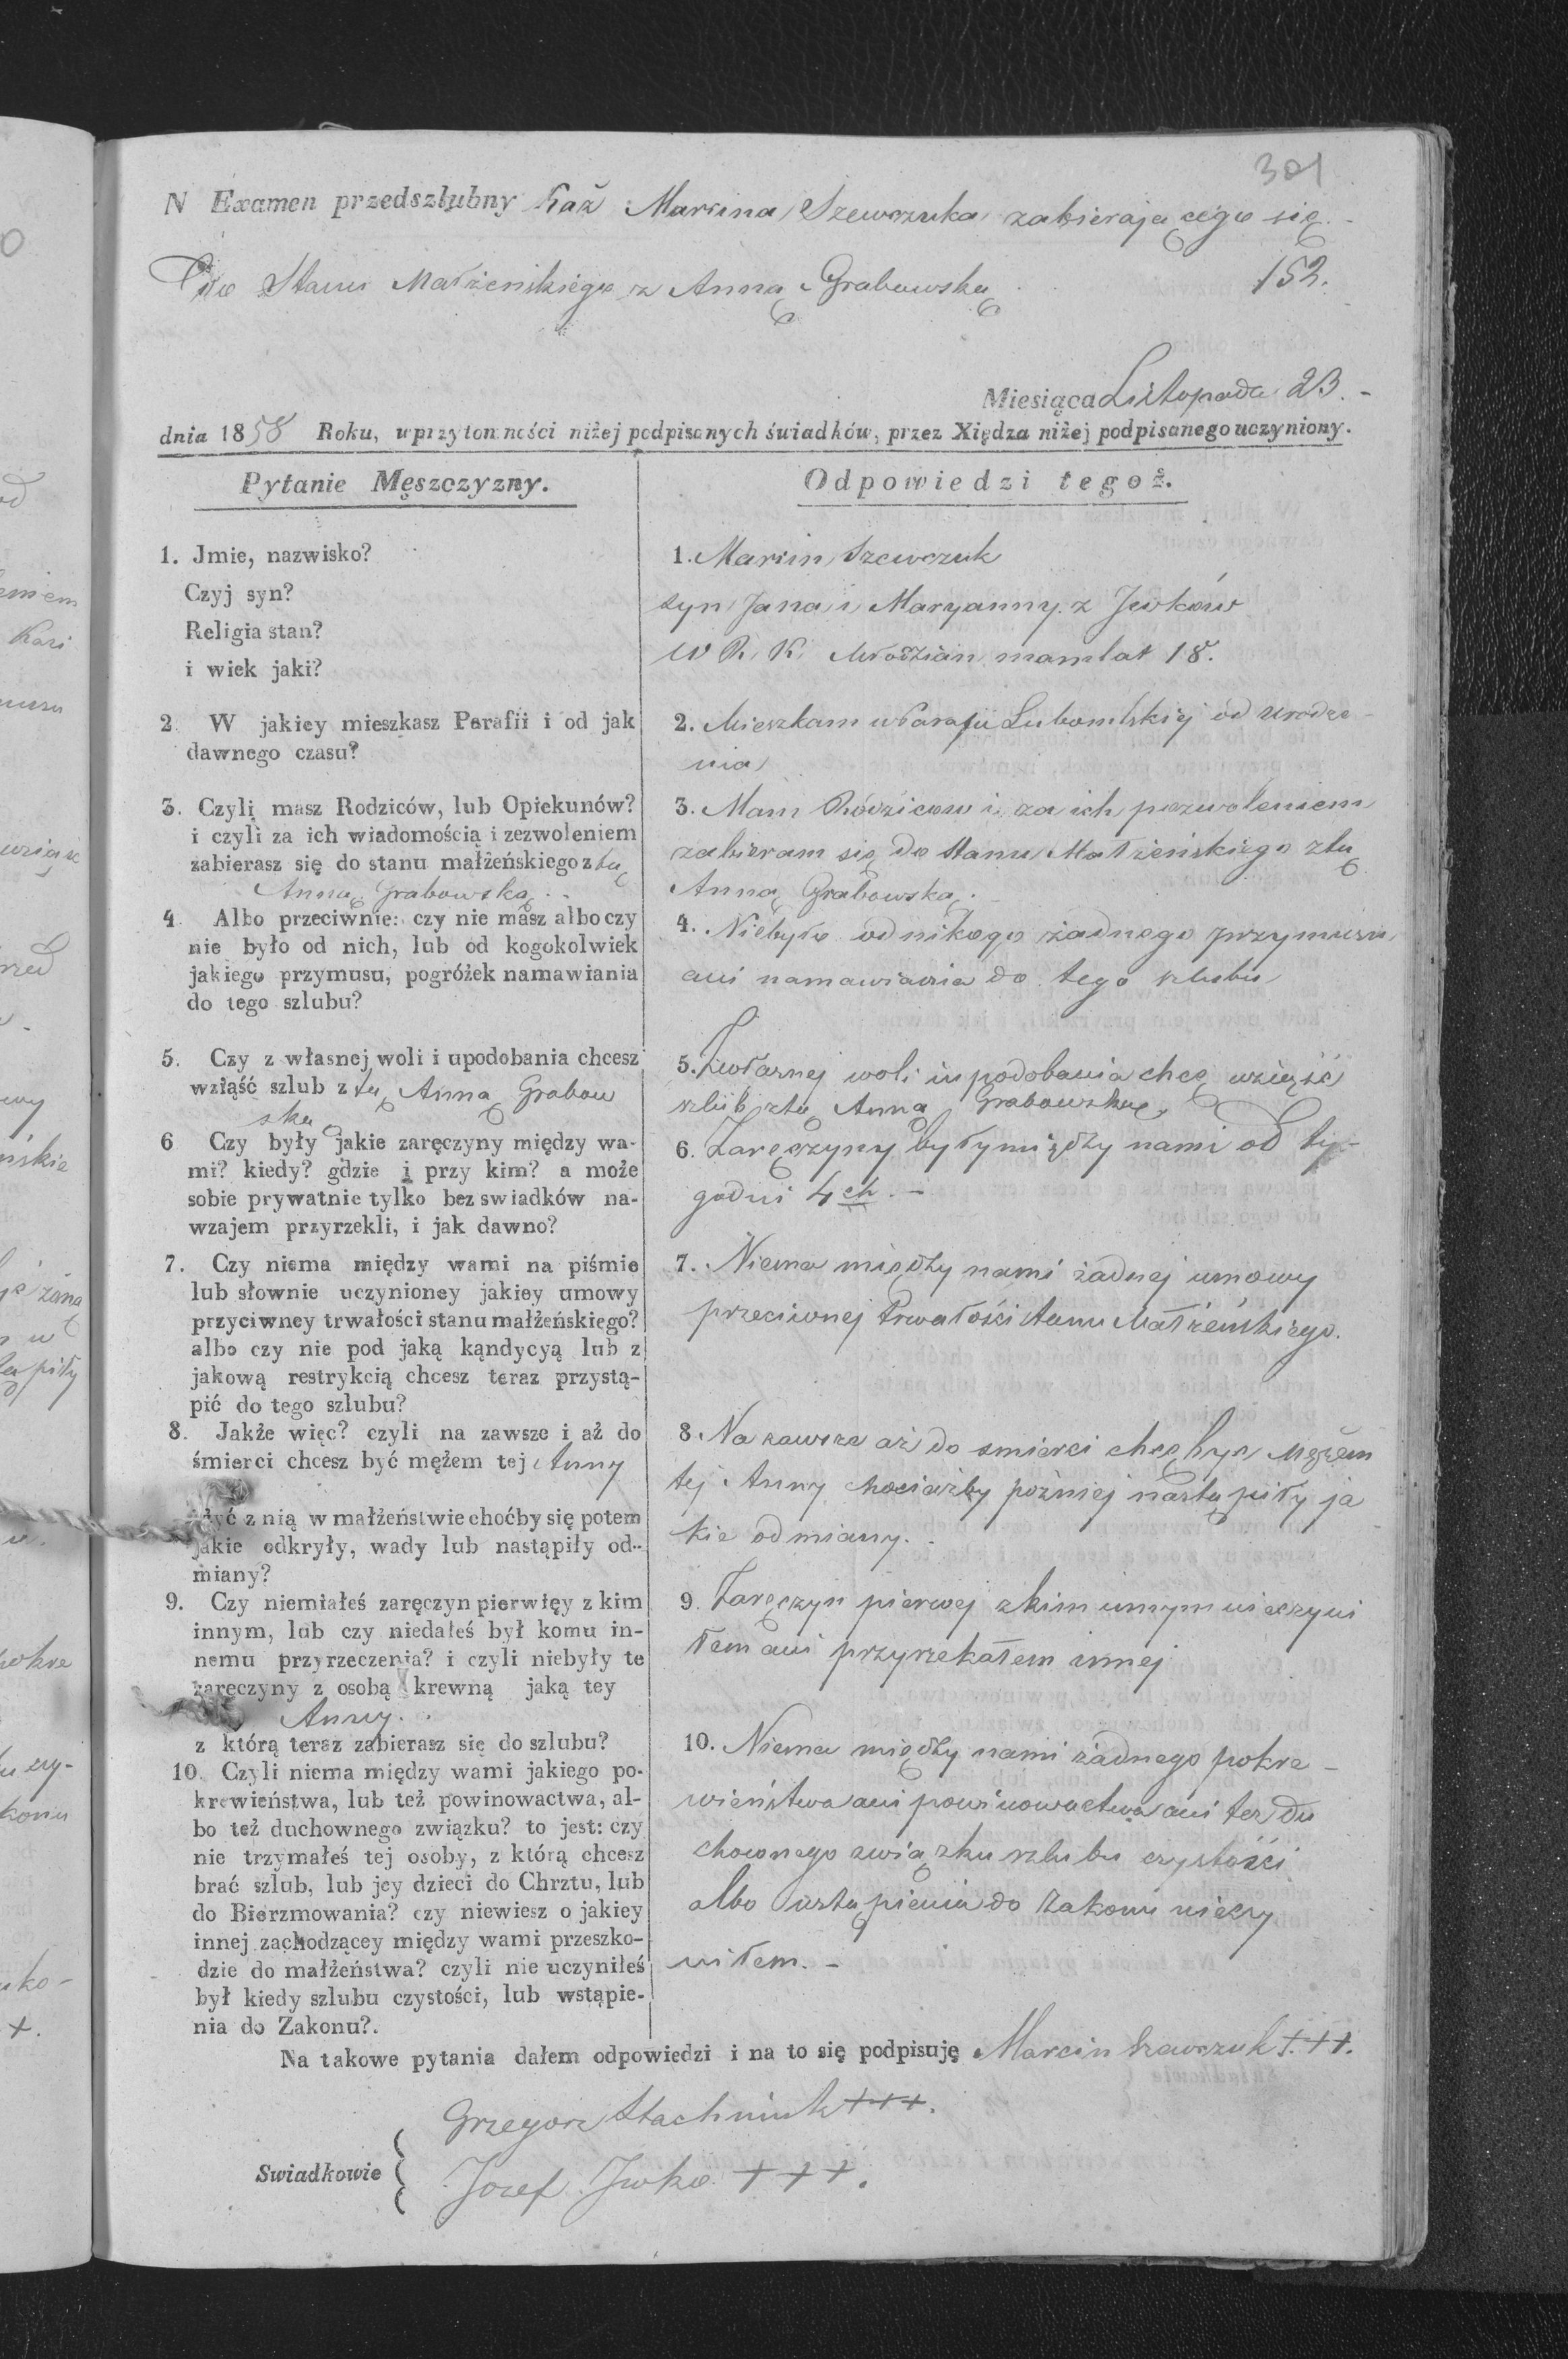 301
N Examen przedszlubny Każ Marcina Szewczuka zabierającego się
Do Stanu Małżenskiego z Anną Grabowską
152.
Miesiąca Listopada 23.-
dnia 1858 Roku, w przytomności niżej podpisanych świadków, przez Xiędza niżej podpisanego uczyniony.
Pytanie Męszczyzny.
Odpowiedzi tegoż.
1. Jmie, nazwisko?
Czyj syn?
Religia stan?
i wiek jaki?
1. Marcin Szewczuk
syn Jana i Maryanny z Jwkow
W R. K. Młodzian mam lat 18.
2. W jakiey mieszkasz Parafii i od jak
dawnego czasu?
2. Mieszkam w Parafii Lubomlskiej od urodze-
nia
3. Czyli masz Rodziców, lub Opiekunów?
i czyli za ich wiadomością i zezwoleniem
zabierasz się do stanu małżeńskiego z tą
Anną Grabowską.
3. Mam Rodzicow i za ich pozwoleniem
zabieram się do Stanu Małżeńskiego ztą
Anną Grabowską.
4. Albo przeciwnie: czy nie masz albo czy
nie było od nich, lub od kogokolwiek
jakiego przymusu, pogróżek namawiania
do tego szlubu?
4. Niebyło od nikogo żadnego przymusu
ani namawiania do tego szlubu
5. Czy z własnej woli i upodobania chcesz
wziąść szlub z tą Anną Grabow
ską
5. Zwłasnej woli i upodobania chcę wziąść
szlub ztą Anną Grabowską.
6 Czy były jakie zaręczyny między wa-
mi? kiedy? gdzie i przy kim? a może
sobie prywatnie tylko bez swiadków na-
wzajem przyrzekli, i jak dawno?
6. Zaręczyny były między nami od ty-
godni 4ch.-
7. Czy niema między wami na piśmie
lub słownie uczynioney jakiey umowy
przyciwney trwałości stanu małżeńskiego?
albo czy nie pod jaką kąndycyą lub z
jakową restrykcią chcesz teraz przystą-
pić do tego szlubu?
7. Niema między nami żadnej umowy
przeciwnej trwałości stanu Małżeńskiego.
8. Jakże więc? czyli na zawsze i aż do
śmierci chcesz być mężem tej Anny
żyć z nią w małżeństwie choćby się potem
jakie odkryły, wady lub nastąpiły od-
miany?
8. Na zawsze aż do smierci chcę być Mężem
tej Anny chociażby pozniej nastąpiły ja
kie odmiany.
9. Czy niemiałeś zaręczyn pierwięy z kim
innym, lub czy niedałeś był komu in-
nemu przyrzeczenia? i czyli niebyły te
zaręczyny z osobą krewną jaką tey
Anny.
z którą teraz zabierasz się do szlubu?
9. Zaręczyn pierwej z kim innym nieczyni
łem ani przyrzekałem innej
10. Czyli niema między wami jakiego po-
krewieństwa, lub też powinowactwa, al-
bo też duchownego związku? to jest: czy
nie trzymałeś tej osoby, z którą chcesz
brać szlub, lub jey dzieci do Chrztu, lub
do Bierzmowania? czy niewiesz o jakiey
innej zachodzącey między wami przeszko-
dzie do małżeństwa? czyli nie uczyniłeś
był kiedy szlubu czystości, lub wstąpie-
nia do Zakonu?.
10. Niema między nami żadnego pokre-
wieństwa ani powinowactwa ani tez du
chownego związku szlubu czystości
albo wstąpienia do Zakonu nieczy
niłem.-
Na takowe pytania dałem odpowiedzi i na to się podpisuję Marcin Szewczuk +++.
Swiadkowie
Grzegorz Stachniuk +++.
Jozef Jwko +++.